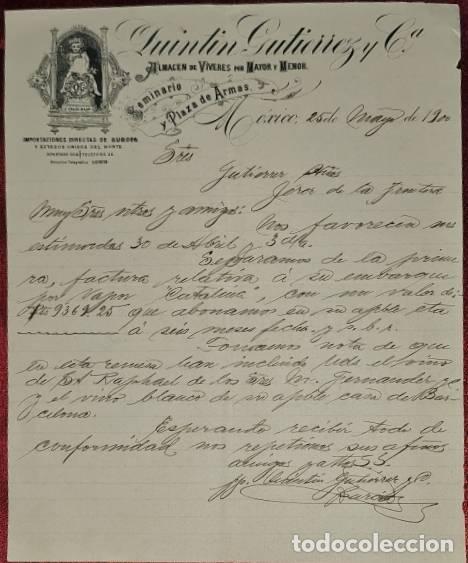 Quintin Gutierrez y Cª
ALMACEN DE VIVERES POR MAYOR Y MENOR.
Seminario
y Plaza de Armas.
IMPORTACIONES DIRECTAS DE EUROPA
Y ESTADOS UNIDOS DEL NORTE
México, 25 de Mayo de 1900
Sres
Gutierrez Hños
Jerez de la Frontera
Muy Sres ntros y amigos:
Nos favorecen sus
estimadas 30 de Abril 3 d/a.
Separamos de la prime
ra, factura relativa á su embarque
por vapor "Catalina", con un valor de
9361 25 que abonamos en su apble cta
á seis meses fecha y s. b. r.
Tomamos nota de que
en esta remesa han incluido Uds. el vino
de St Raphael de los Sres M. Fernandez y C
y el vino blanco de su apble casa de Bar
celona.
Esperando recibir todo de
conformidad nos repetimos sus afmos
amigos y attos SS.
pp. Quintin Gutiérrez y C.
todocoleccion.net